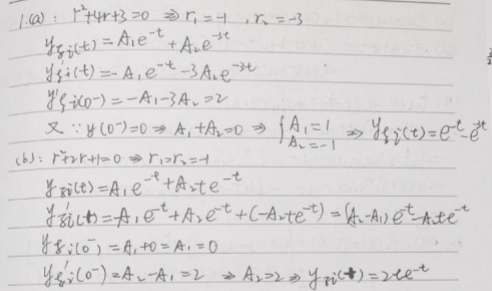 1.(a): r²+4r+3=0 ⇒ r₁=-1, r₂=-3
yzi(t)=A₁e^{-t}+A₂e^{-3t}
y'zi(t)=-A₁e^{-t}-3A₂e^{-3t}
y'zi(0⁻)=-A₁-3A₂=2
又∵y(0⁻)=0 ⇒ A₁+A₂=0 ⇒ {A₁=1 A₂=-1 ⇒ yzi(t)=e^{-t}-e^{-3t}
(b): r²+2r+1=0 ⇒ r₁=r₂=-1
yzi(t)=A₁e^{-t}+A₂te^{-t}
y'zi(t)=-A₁e^{-t}+A₂e^{-t}+(-A₂te^{-t})=(A₂-A₁)e^{-t}-A₂te^{-t}
yzi(0⁻)=A₁+0=A₁=0
y'zi(0⁻)=A₂-A₁=2 ⇒ A₂=2 ⇒ yzi(t)=2te^{-t}